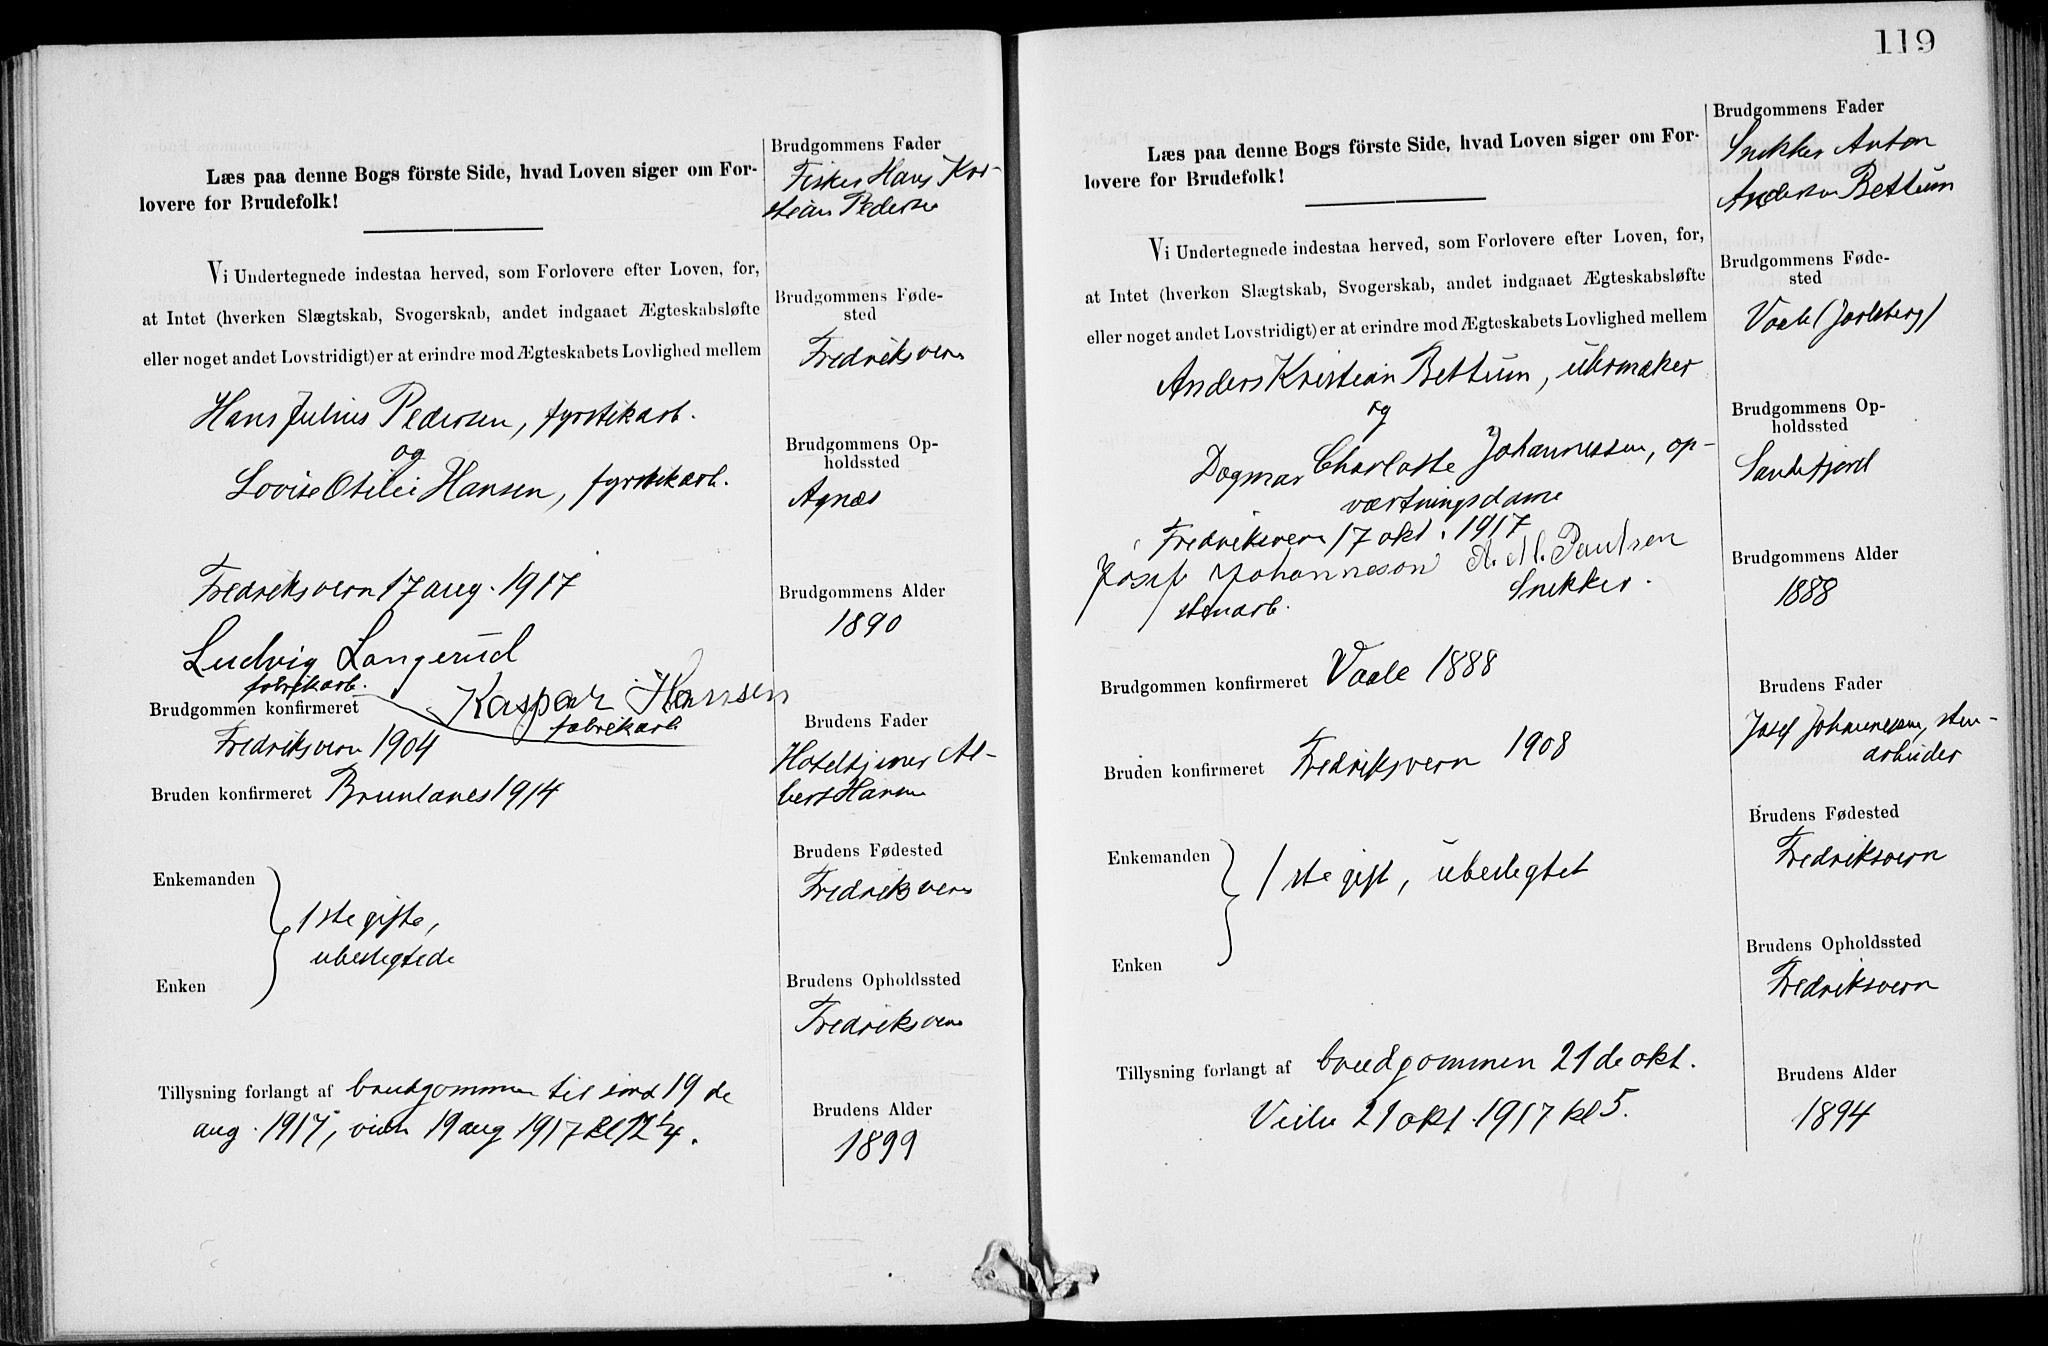 Læs paa denne Bogs förste Side, hvad Loven siger om For-
lovere for Brudefolk!
Vi Undertegnede indestaa herved, som Forlovere efter Loven, for,
at Intet (hverken Slægtskab, Svogerskab, andet indgaaet Ægteskabsløfte
eller noget andet Lovstridigt) er at erindre mod Ægteskabets Lovlighed mellem
Hans Julius Pedersen, fyrstikarb.
og
Lovise Otilie Hansen, fyrstikarb.
Fredriksvern 17 aug. 1917
Ludvig Langerud
fabrikarb.
Kaspar Hansen
fabrikarb.
Brudgommen konfirmeret
Fredriksvern 1904
Bruden konfirmeret Brunlanes 1914
Enkemanden
1ste gifte,
ubeslegtede
Enken
Tillysning forlangt af brudgommen til 19 de
aug. 1917, 19 aug 1917 kl 12 1/4.
Brudgommens Fader
Fisker Hans Kri-
stian Pedersen
Brudgommens Føde-
sted
Fredriksvern
Brudgommens Op-
holdssted
Agnæs
Brudgommens Alder
1890
Brudens Fader
Hoteltjener Al-
bert Hansen
Brudens Fødested
Fredriksvern
Brudens Opholdssted
Fredriksvern
Brudens Alder
1899
119
Læs paa denne Bogs förste Side, hvad Loven siger om For-
lovere for Brudefolk!
Vi Undertegnede indestaa herved, som Forlovere efter Loven, for,
at Intet (hverken Slægtskab, Svogerskab, andet indgaaet Ægteskabsløfte
eller noget andet Lovstridigt) er at erindre mod Ægteskabets Lovlighed mellem
Anders Kristian Bettum, uhrmaker
og
Dagmar Charlotte Johannessen, op-
vartningsdame
Fredriksvern 17 okt. 1917
Josef Johanneson A. M. Paulsen
stenarb. Snekker.
Brudgommen konfirmeret Vaale 1888
Bruden konfirmeret Fredriksvern 1908
Enkemanden
1ste gift, ubeslegtet
Enken
Tillysning forlangt af brudgommen 21 de okt.
Viede 21 okt. 1917 kl 5.
Brudgommens Fader
Snekker Anton
Anderson Bettum
Brudgommens Føde-
sted
Vaale (Jarlsberg)
Brudgommens Op-
holdssted
Sandefjord
Brudgommens Alder
1888
Brudens Fader
Josef Johannessen, sten-
arbeider
Brudens Fødested
Fredriksvern
Brudens Opholdssted
Fredriksvern
Brudens Alder
1894